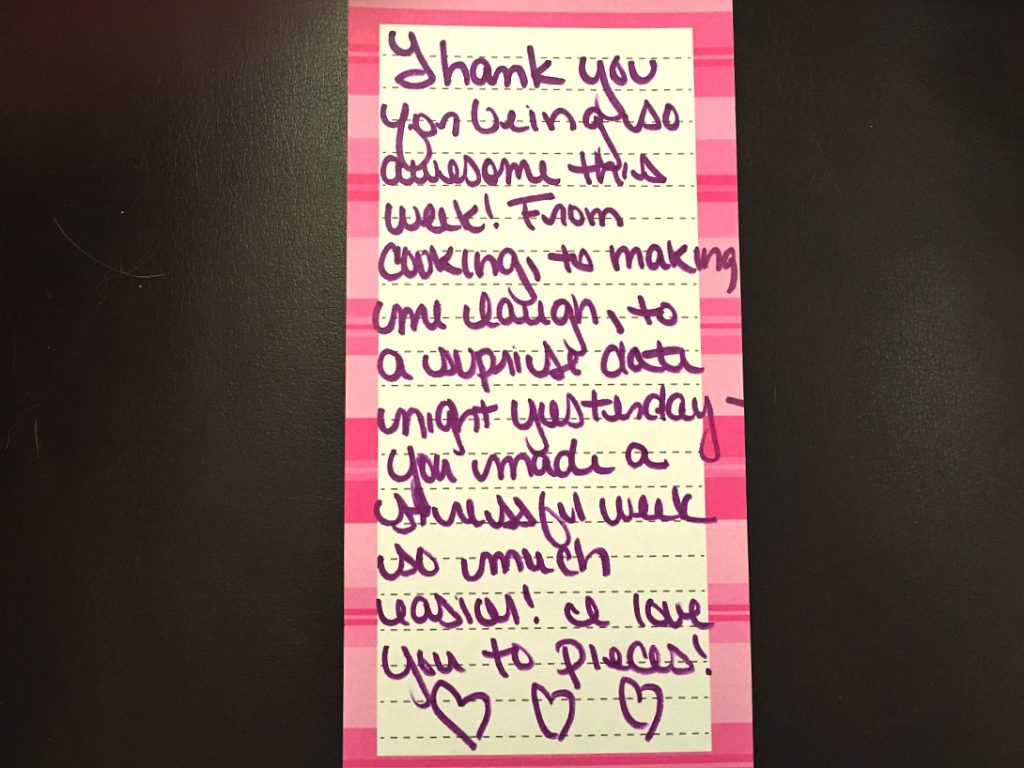 Thank you
for being so
awesome this
week! From
cooking, to making
me laugh, to
a suprise date
night yesterday -
you made a
stressful week
so much
easier! I love
you to pieces!